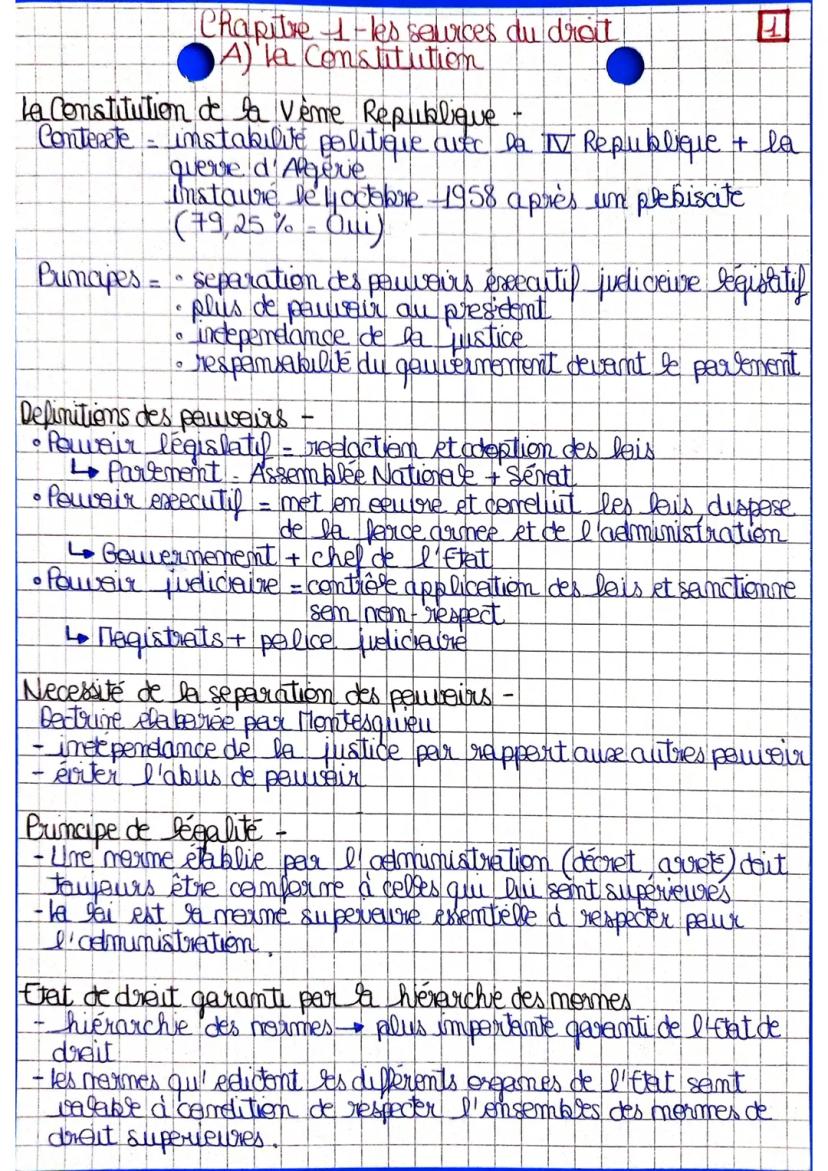 Chapitre 1 - les sources du droit
1
A) La Constitution
La Constitution de la Vème Republique -
Contexte = instabilité politique avec la IV Republique + la
guerre d'Algérie
instauré le 4 octobre 1958 après un plebiscite
(79,25 % = Oui)
Principes = • separation des pouvoirs éxecutif judiciaire législatif
• plus de pouvoir au president
• independance de la justice
• responsabilité du gouvernement devant le parlement
Definitions des pouvoirs -
• Pouvoir législatif = redaction et adoption des lois
↳ Parlement = Assemblée Nationale + Sénat
• Pouvoir executif = met en oeuvre et conduit les lois, dispose
de la force armee et de l'administration
↳ Gouvernement + chef de l'Etat
• Pouvoir judiciaire = contrôle application des lois et sanctionne
son non-respect
↳ Magistrats + police judiciaire
Necessité de la separation des pouvoirs -
Doctrine élaborée par Montesquieu
- indépendance de la justice par rapport aux autres pouvoir
- éviter l'abus de pouvoir
Principe de légalité -
- Une norme établie par l'administration (décret, arreté) doit
toujours être conforme à celles qui lui sont supérieures
- la loi est la norme superieure essentielle à respecter pour
l'administration.
Etat de droit garanti par la hiérarchie des normes
- hiérarchie des normes → plus importante garanti de l'Etat de
droit
- les normes qu'edictent les différents organes de l'Etat sont
valable à condition de respecter l'ensembles des normes de
droit superieures.